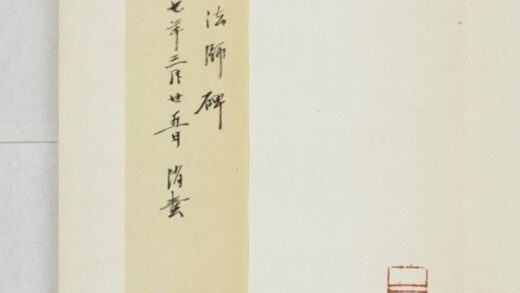 法師碑
七年三月廿五日